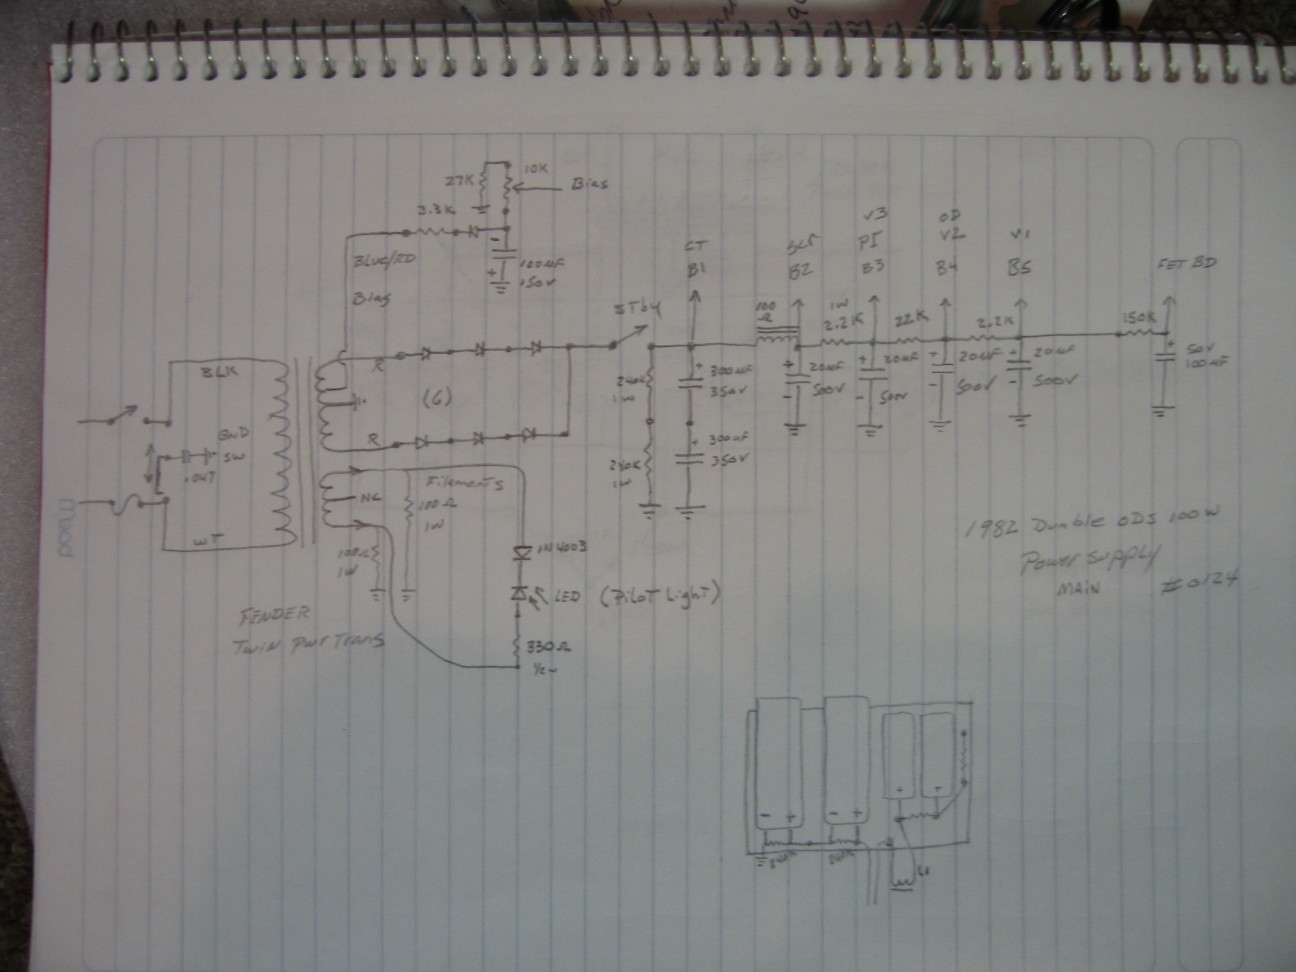 27K
10K
Bias
3.3K
BLUE/RD
100UF
150V
Bias
STby
CT
B1
SCR
B2
V3
PI
B3
OD
V2
B4
V1
B5
FET BD
100
Ω
1W
2.2K
22K
2.2K
150K
BLK
R
(6)
R
240K
1W
300UF
350V
20UF
500V
20UF
500V
20UF
500V
20UF
500V
50V
100UF
GND
SW
.047
300UF
350V
240K
1W
Filements
NC
100Ω
1W
100Ω
1W
WT
1N4003
LED (Pilot Light)
330Ω
1/2W
FENDER
Twin Pwr Trans
1982 Dumble ODS 100W
Power Supply
MAIN #0124
240K
240K
Mead